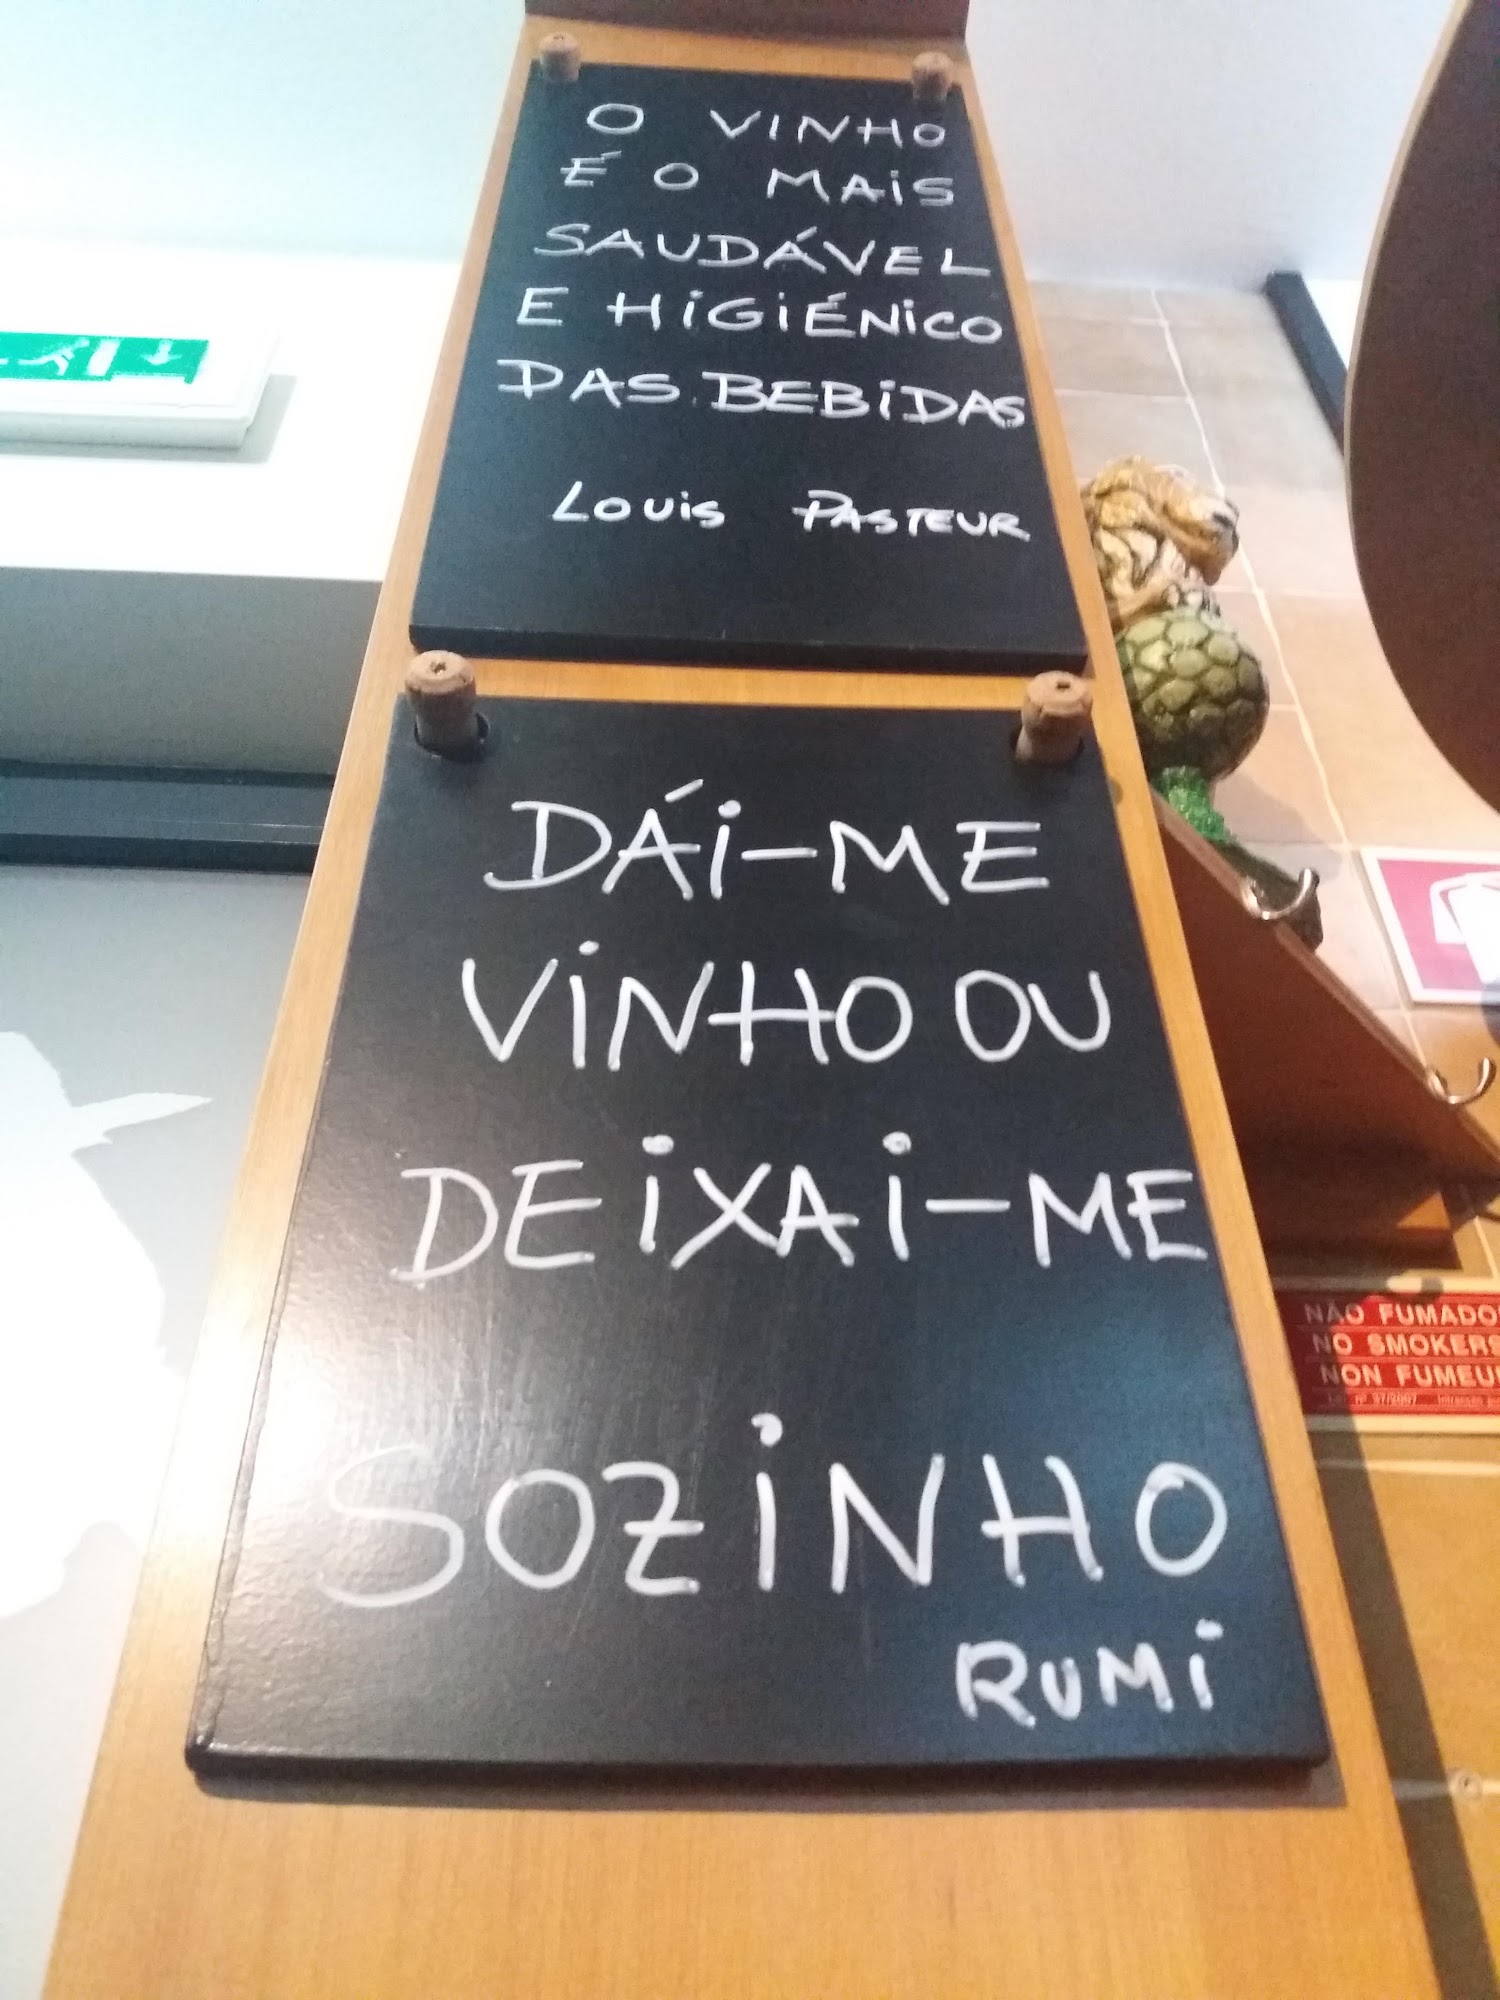 O VINHO
É O MAiS
SAUDÁVEL
E HiGiÉNiCO
DAS BEBiDAS
Louis PASTEUR
DÁi-ME
ViNHO OU
DEiXAi-ME
SOZiNHO
RUMi
NÃO FUMADO
NO SMOKERS
NON FUMEU
nº 37/2007